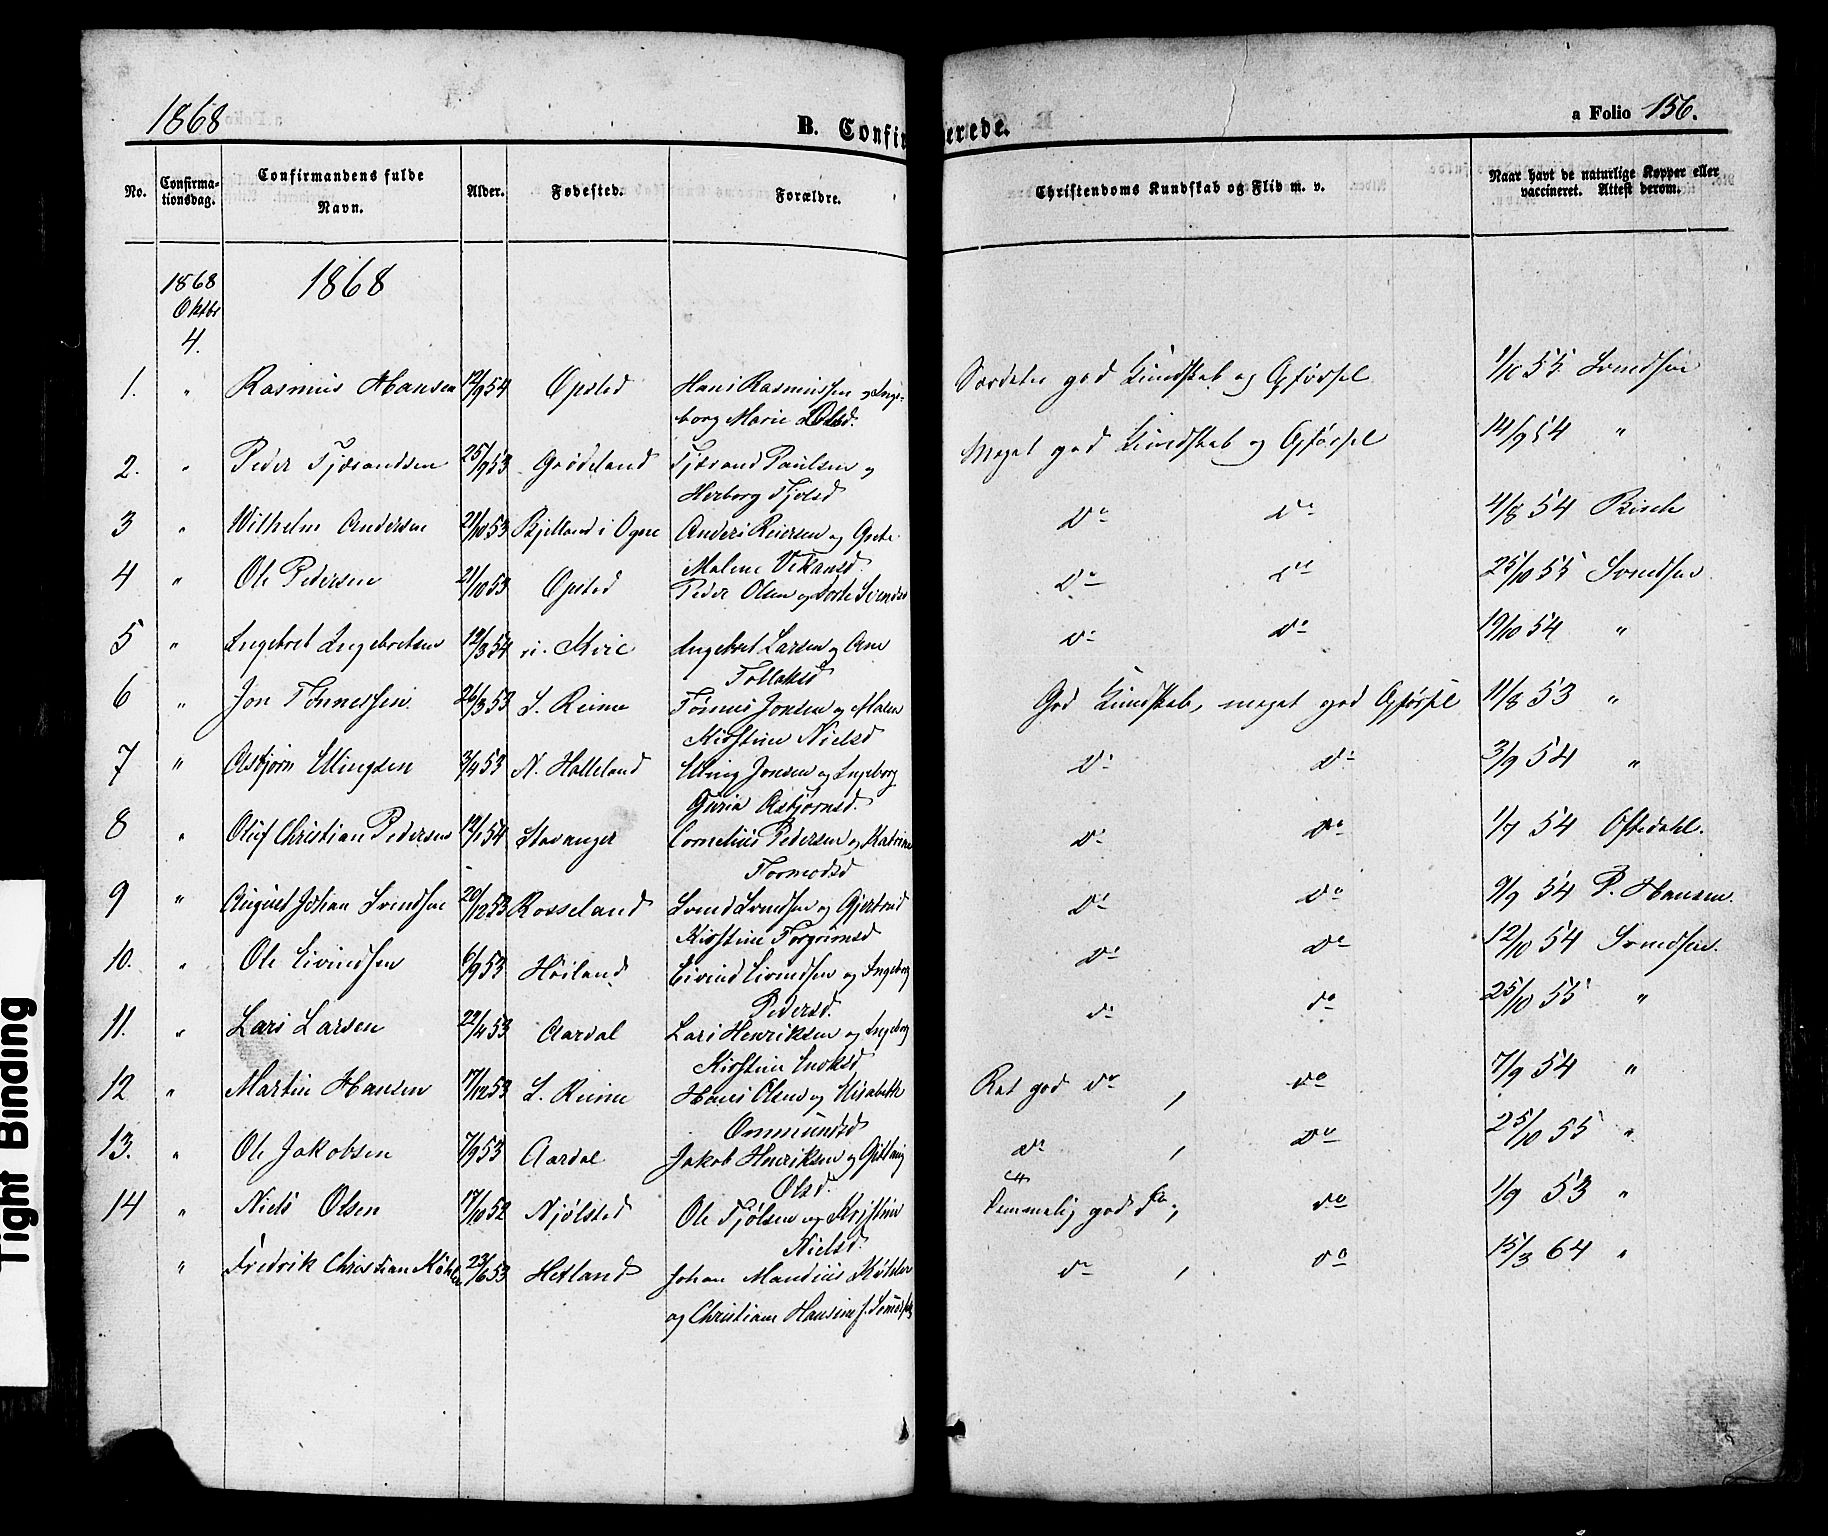 1868
B. Confirmerede.
a Folio 156.
No. Confirma-tionsdag. Confirmandens fulde Navn. Alder. Fødested. Forældre. Christendoms Kundskab og Flid m. v. Naar havt de naturlige Kopper eller vaccineret. Attest derom.
1868 1868
Oktbr
4.
1. " Rasmus Hansen 12/9 54 Opsted Hans Rasmussen og Inge- Særdeles god Kundskab og Opførsel 1/10 55 Svendsen
borg Marie Olsd.
2. " Peder Tjærandsen 25/9 53 Grødeland Tjærand Paulsen og Meget god Kundskab og Opførsel 14/9 54 "
Herborg Tjølsd
3 " Wilhelm Andersen 21/10 53 Bjelland i Ogne Anders Reiersen og Grete do do 4/8 54 Risch
Malene Vikansd.
4 " Ole Pedersen 21/10 53 Opsted Peder Olsen og Dorte Svendsd do do 25/10 55 Svendsen
5 " Ingebret Ingebretsen 12/3 54 Ingebret Larsen og Ane do do 19/10 54 "
Tollaksd
6 " Jon Tønnessen 26/3 53 S. Reime Tønnes Jonsen og Malen God Kundskab, meget god Opførsel 11/8 53 "
Kirstine Nielsd
7 " Asbjørn Ellingsen 3/4 53 N. Holleland Elling Jonsen og Ingeborg do do 3/9 54 "
Guria Asbjørnsd.
8 " Oluf Christian Pedersen 12/1 54 Stavanger Cornelius Pedersen og Katrine do do 1/7 54 Oftedahl.
Tormodsd
9 " August Johan Svendsen 20/12 53 Rosseland Svend Svendsen og Gjertrud do do 9/9 54 P. Hansen.
Kirstine Torgrimsd
10. " Ole Eivindsen 6/9 53 Høiland Eivind Eivindsen og Ingeborg do do 12/10 54 Svendsen.
Pedersd.
11. " Lars Larsen 22/4 53 Aardal Lars Henriksen og Ingeborg do do 25/10 55 "
Kirstine Enoksd
12 " Martin Hansen 17/12 53 S. Reime Hans Olsen og Elisabeth Ret god do , do 7/9 54 "
Ommundsd
13. " Ole Jakobsen 7/9 53 Aardal Jakob Henriksen og do , do 25/10 55 "
Olsd.
14 " Niels Olsen 17/10 52 Njølsted Ole Tjølsen og Kristine Temmelig god do, do 1/9 53 "
Nielsd.
" Fredrik Christian Køhler 23/6 53 Hetland Johan Mandius Køhler do , do 15/3 64 "
og Christiane Hansine f. Svendsen
Tight Binding